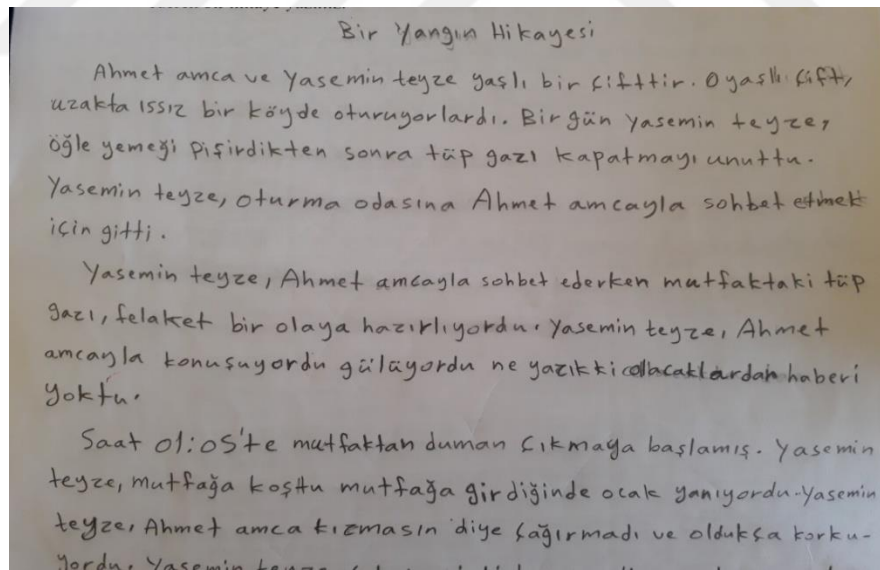 Bir Yangın Hikayesi
Ahmet amca ve Yasemin teyze yaşlı bir çifttir. O yaşlı çift,
uzakta ıssız bir köyde oturuyorlardı. Bir gün Yasemin teyze,
öğle yemeği pişirdikten sonra tüp gazı kapatmayı unuttu.
Yasemin teyze, oturma odasına Ahmet amcayla sohbet etmek
için gitti.
Yasemin teyze, Ahmet amcayla sohbet ederken mutfaktaki tüp
gazı, felaket bir olaya hazırlıyordu. Yasemin teyze, Ahmet
amcayla konuşuyordu gülüyordu ne yazıkki olacaklardan haberi
yoktu.
Saat 01:05'te mutfaktan duman çıkmaya başlamış. Yasemin
teyze, mutfağa koştu mutfağa girdiğinde ocak yanıyordu. Yasemin
teyze, Ahmet amca kızmasın diye çağırmadı ve oldukça korku-
yordu. Yasemin